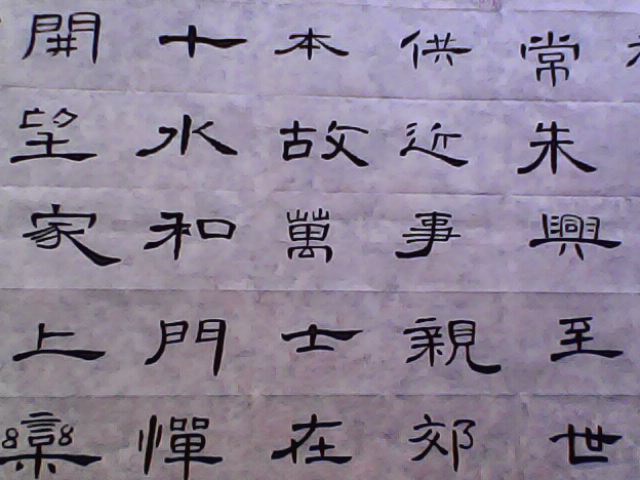 常朱興至世
供近事親郊
本故萬士在
十水和門憚
開望家上欒